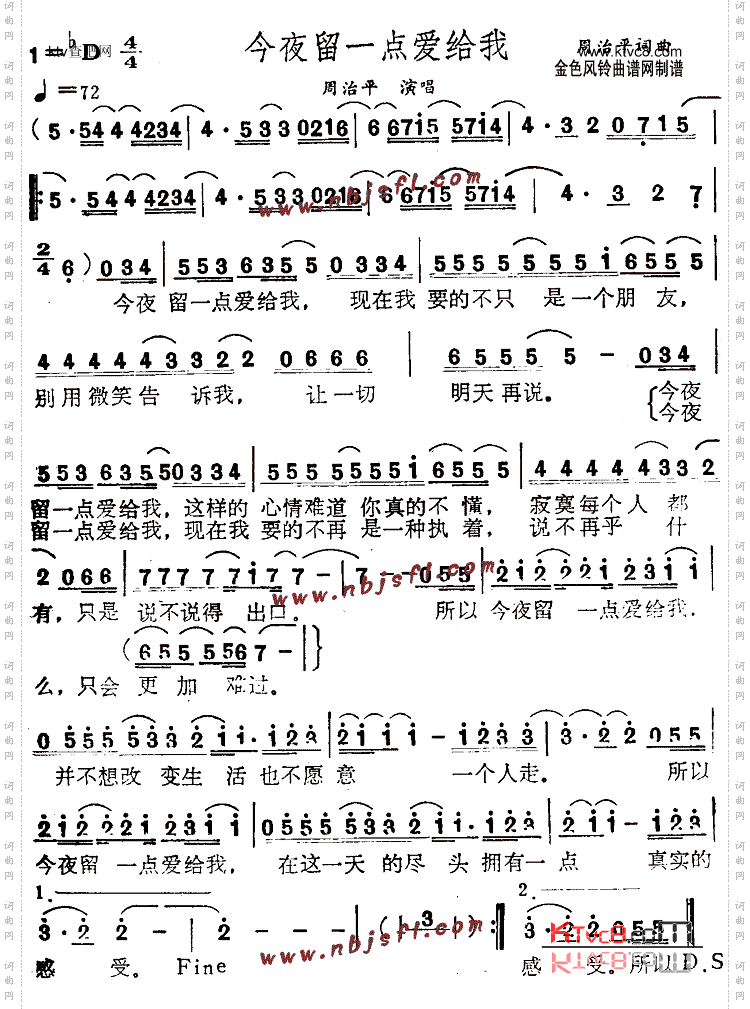 今夜留一点爱给我
1=♭D 4/4
周治平词曲
金色风铃曲谱网制谱
♩=72
周治平 演唱
(5·544 4234|4·533 0216|6 6715 5714|4·32 0 715|
5·544 4234|4·533 0216|6 6715 5714|4·3 2 7|
www.nbjsfl.com
2/4 6)034|553 635 5 0334|555 5 5551 655 5|
今夜 留一点爱给我, 现在我 要的不只 是一个朋 友,
444443322 0666|65555 - 034|
别用微笑告 诉我, 让一切 明天再说。 今夜
今夜
553 63550334|555 55551 655 5|4444 4332|
留一点爱给我, 这样的 心情难道 你真的不 懂, 寂寞每个人 都
留一点爱给我, 现在我 要的不再 是一种执 着, 说不再乎 什
2 066|7777 7177-|7--055|212 2212321 1|
有, 只是 说不说得 出口。 所以 今夜留 一点爱给我.
www.nbjsfl.com
(655 5567-|
么, 只会 更加 难过。
0 555 5332 211·123|2111-123|3·2 055|
并不想改 变生 活也不愿意 一个人走。 所以
212 2212321 1|05555332 211·123|2123 055|
今夜留 一点爱给我, 在这一天 的尽 头 拥有一 点 真实的
1.
2.
3·2 2-|2--(3)|
3·2 2 055
感 受。 Fine
感 受。所以 D.S
www.nbjsfl.com
Ktvc8.com